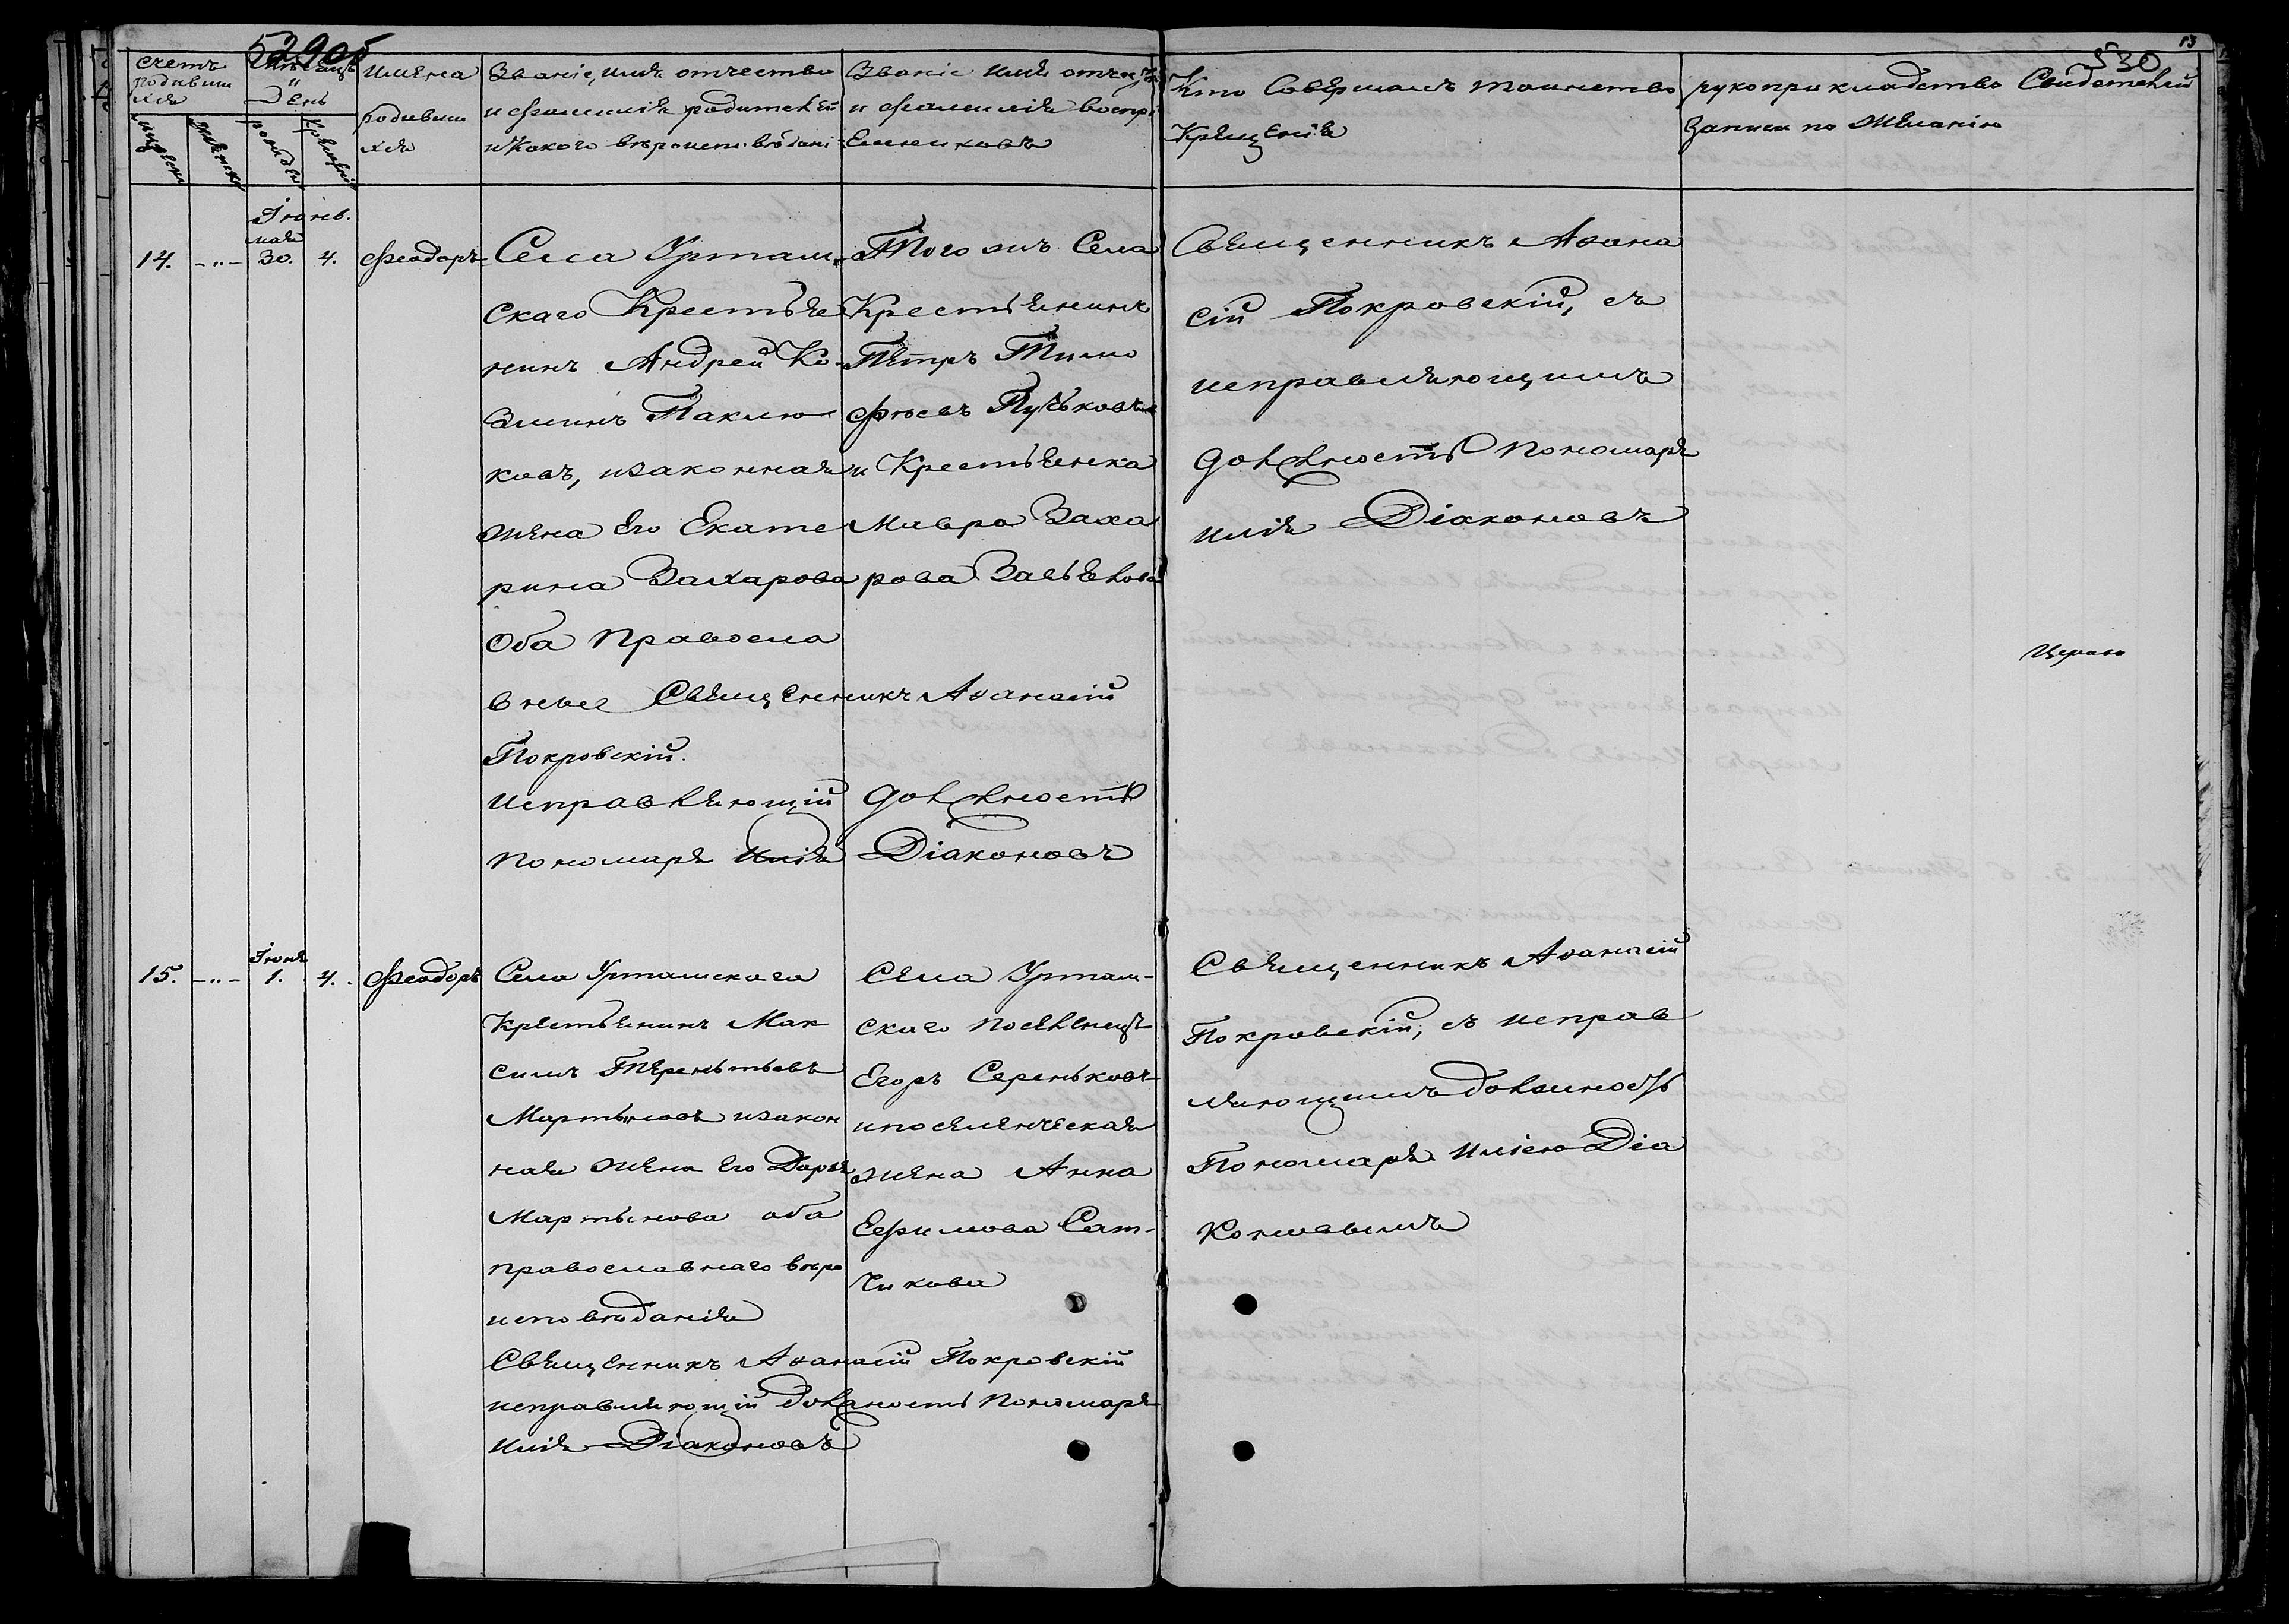 52905
530
13
Счетъ родившихся
Мѣсяцъ и День
Имена родившихся
Званіе, имя отчество и фамилія родителей и какого вѣроисповѣдані
Званіе имя отчест и фамилія воспріемниковъ
Кто Совершалъ таинство Крещенія
рукоприкладство Свидетелей записи по желанію
мужеска
женска
рожден
крещенія
Іюнь.
мая
14. -"- 30. 4. Феодоръ
Села Урташ-
скаго Крестья
нинъ Андрей Ко-
зминъ Паклю
ковъ, изаконная
жена Его Екате
рина Захарова
Оба Правосла
вные Священникъ Аѳанасій
Покровскій.
исправляющій должность
пономаря Илія Діаконовъ
Того жъ Села
Крестьянинъ
Петръ Тимо
фѣевъ Пучковъ
и Крестьянка
Мавра Заха
рова
Священникъ Аѳана
сій Покровскій, съ
исправляющимъ
должность пономаря
илія Діаконовъ
Іюня
15. -"- 1. 4. Феодоръ
Села Урташскаго
Крестьянинъ Мак
симъ Терентьевъ
Мартыновъ изакон
ная жена Его Дарья
Мартынова оба
православнаго вѣро
исповѣданія
Священникъ Аѳанасій Покровскій
исправляющій должность пономаря
илія Діаконовъ
Села Урташ-
скаго поселенецъ
Егоръ Сереньковъ
ипоселенческая
жена Анна
Ефимова Сат-
чикова
Священникъ Аѳанасій
Покровскій, съ исправ
ляющимъ должность
Пономаря иліею Діа
коновымъ